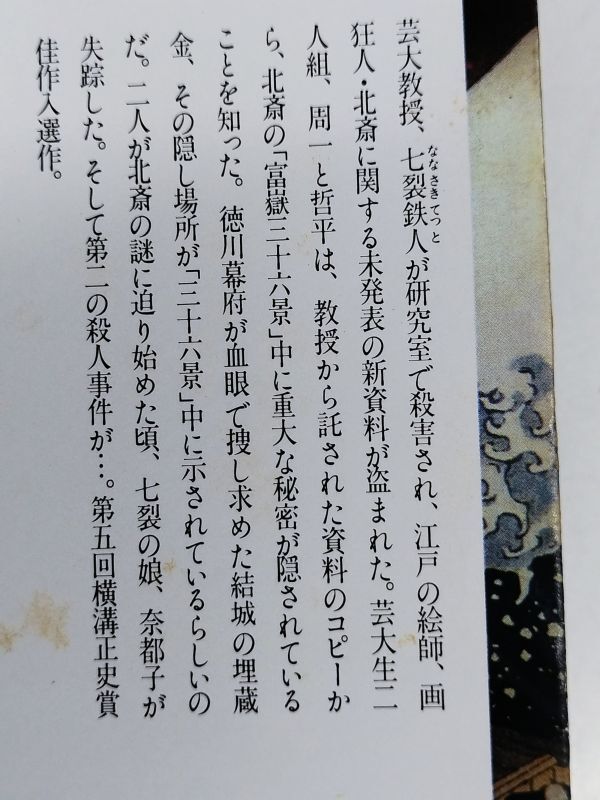 芸大教授、七裂鉄人が研究室で殺害され、江戸の絵師、画
ななさきてつと
狂人・北斎に関する未発表の新資料が盗まれた。芸大生二
人組、周一と哲平は、教授から託された資料のコピーか
ら、北斎の「富嶽三十六景」中に重大な秘密が隠されている
ことを知った。徳川幕府が血眼で捜し求めた結城の埋蔵
金、その隠し場所が「三十六景」中に示されているらしいの
だ。二人が北斎の謎に迫り始めた頃、七裂の娘、奈都子が
失踪した。そして第二の殺人事件が…。第五回横溝正史賞
佳作入選作。